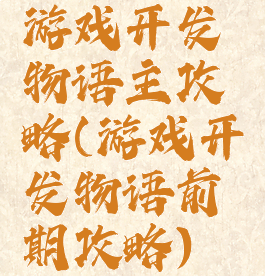 游戏开发
物语主攻
略(游戏开
发物语前
期攻略)